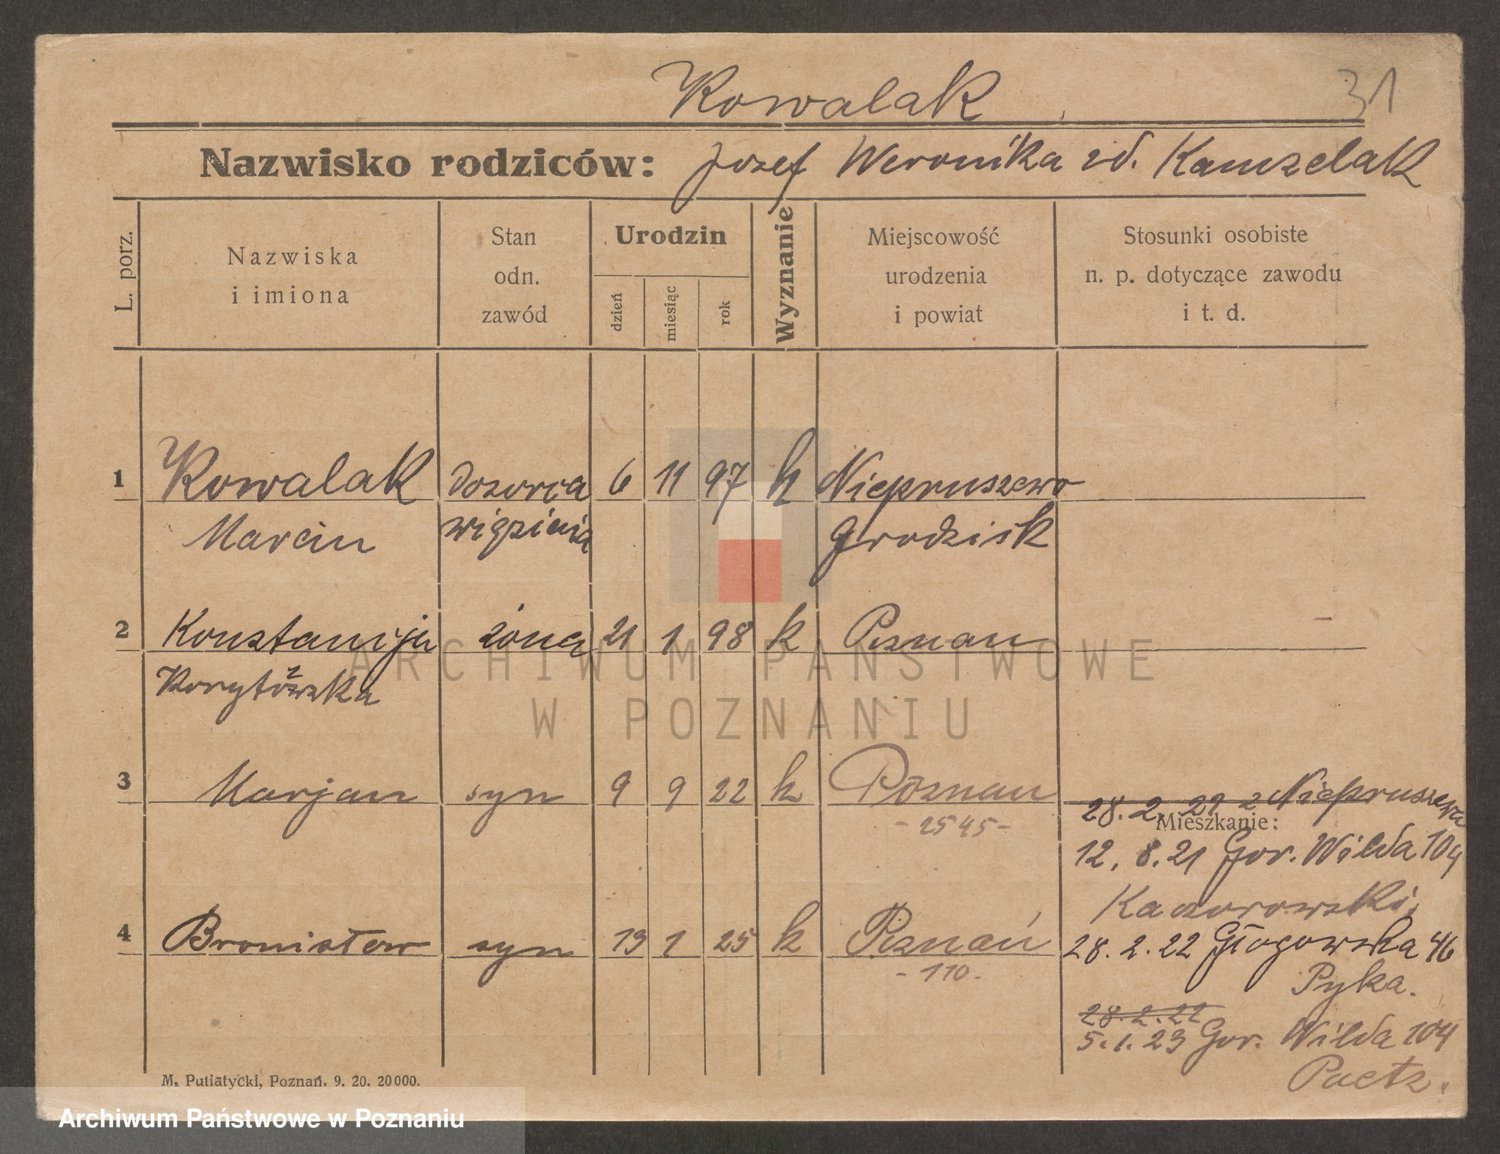 31
Kowalak
Nazwisko rodziców: Jozef Weronika zd. Kamzelak
L. porz.
Nazwiska
i imiona
Stan
odn.
zawód
Urodzin
dzień
miesiąc
rok
Wyznanie
Miejscowość
urodzenia
i powiat
Stosunki osobiste
n. p. dotyczące zawodu
i t. d.
1 Kowalak dozorca 6 11 97 k Niepruszewo
Marcin więzienia Grodzisk
2 Konstancja żona 21 1 98 k Poznan
Korytowska
3 Marjan syn 9 9 22 k Poznan
- 2545 -
28. 2. 21 z Niepruszewa
Mieszkanie:
12. 8. 21 Gor. Wilda 104
Kaczorowski,
4 Bronisław syn 13 1 25 k Poznań
- 110 -
28. 2. 22 Głogowska 46
Pyka.
28. 2. 22
5. 1. 23 Gor. Wilda 104
Paetz.
M. Putiatycki, Poznań. 9. 20. 20000.
ARCHIWUM PAŃSTWOWE
W POZNANIU
Archiwum Państwowe w Poznaniu